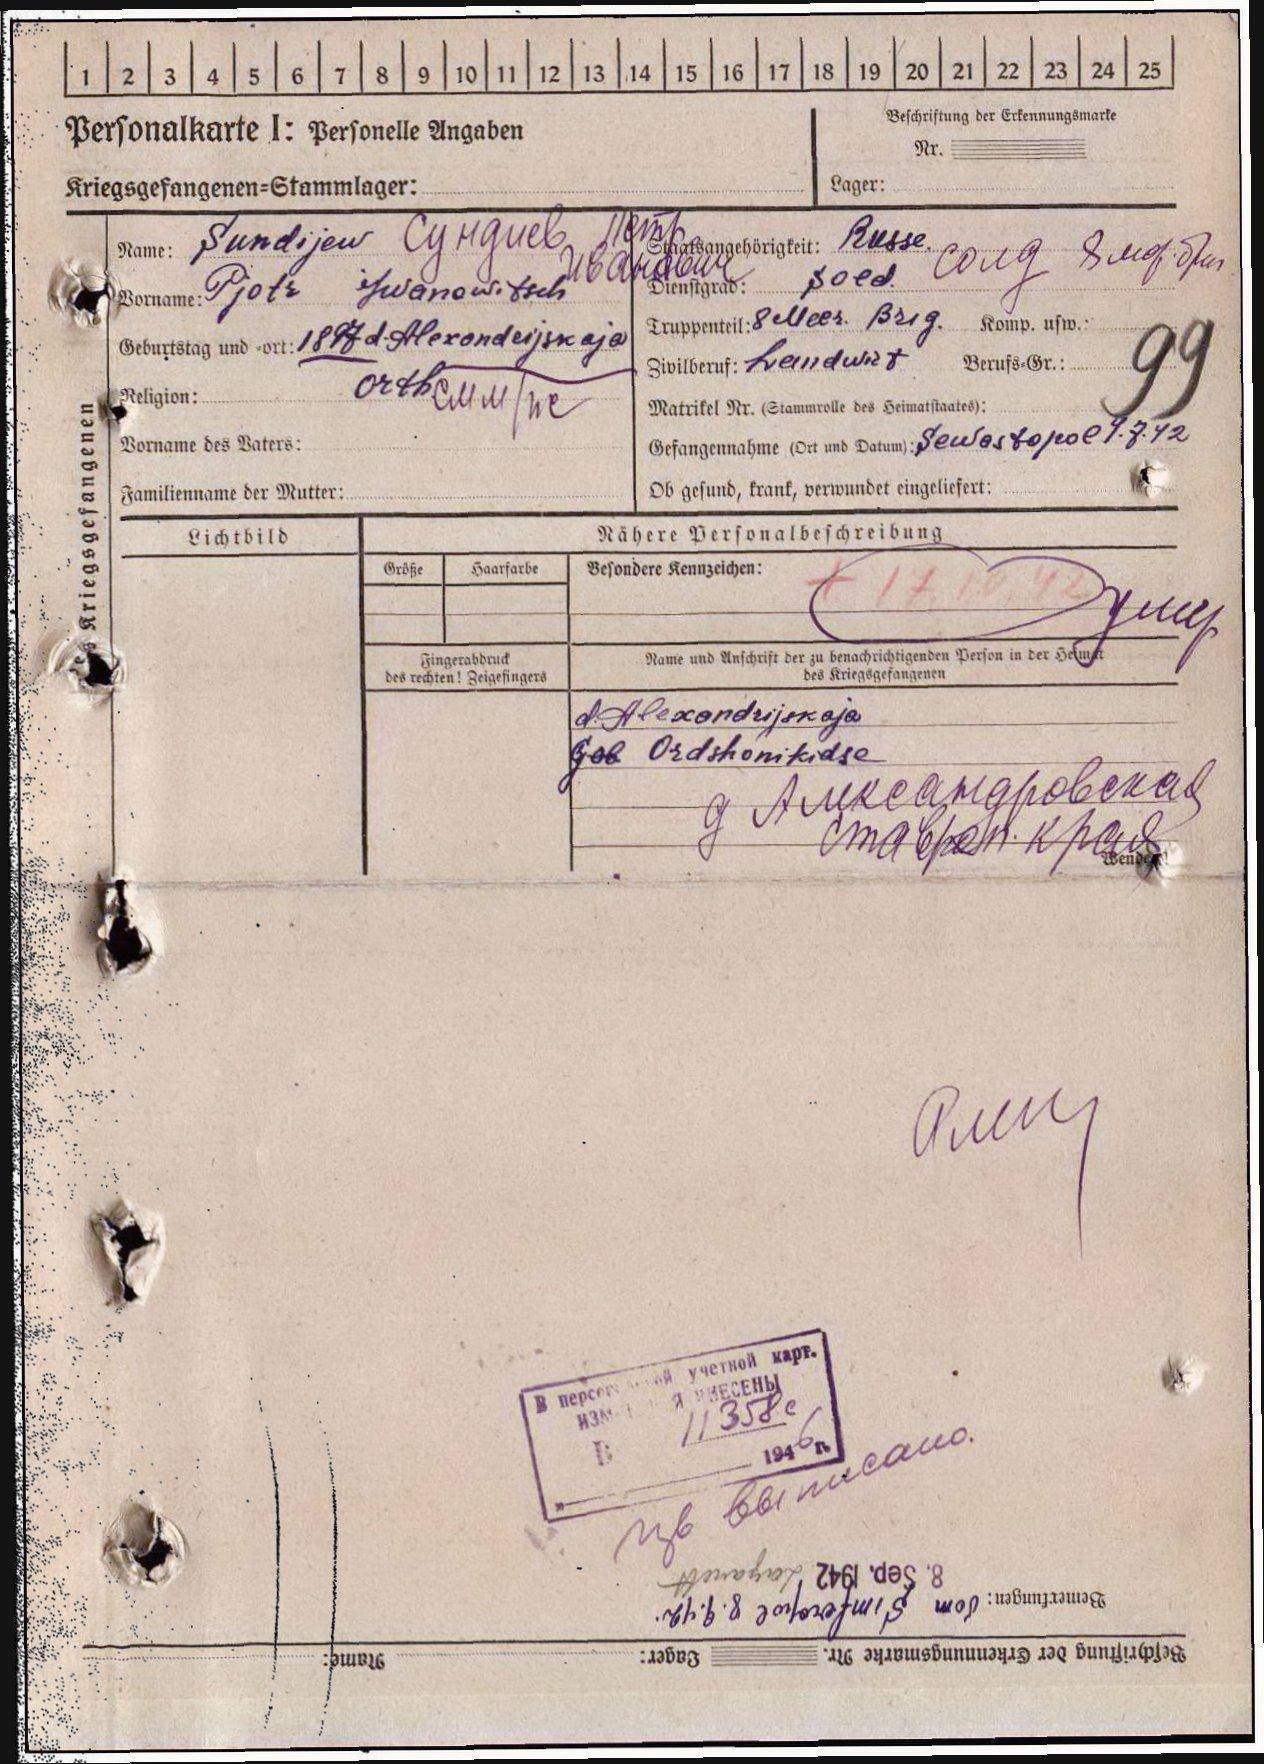 1 2 3 4 5 6 7 8 9 10 11 12 13 14 15 16 17 18 19 20 21 22 23 24 25
Personalkarte I: Personelle Angaben
Kriegsgefangenen=Stammlager:
Beschriftung der Erkennungsmarke
Nr.
Lager:
Kriegsgefangenen
Name: Sundijew Сундиев Петр
Иванович
Vorname: Pjotr Iwanowitsch
Geburtstag und -ort: 1897 d. Alexandrijskaja
Religion: Orth
Vorname des Vaters:
Familienname der Mutter:
Staatsangehörigkeit: Russe.
Dienstgrad: Sold. солд 8 мор. бриг.
Truppenteil: 8 Meer. Brig. Komp. usw.:
Zivilberuf: Landwirt Berufs=Gr.:
99
Matrikel Nr. (Stammrolle des Heimatstaates):
Gefangennahme (Ort und Datum): Sewastopol 1.7.42
Ob gesund, krank, verwundet eingeliefert:
Lichtbild
Nähere Personalbeschreibung
Größe Haarfarbe Besondere Kennzeichen:
+ 17.10.42 умер
Fingerabdruck
des rechten! Zeigefingers
Name und Anschrift der zu benachrichtigenden Person in der Heimat
des Kriegsgefangenen
d. Alexandrijskaja
Ordshonikidse
д Александровская
Ставроп. край
Wenden!
В персональной учетной карт.
ИЗМЕНЕНИЯ ВНЕСЕНЫ
11358с
1946 г.
выписано.
8. Sep. 1942 Lazarett
Bemerkungen: Vom Simferopol 8.9.42.
Beschriftung der Erkennungsmarke Nr. Lager: Name: